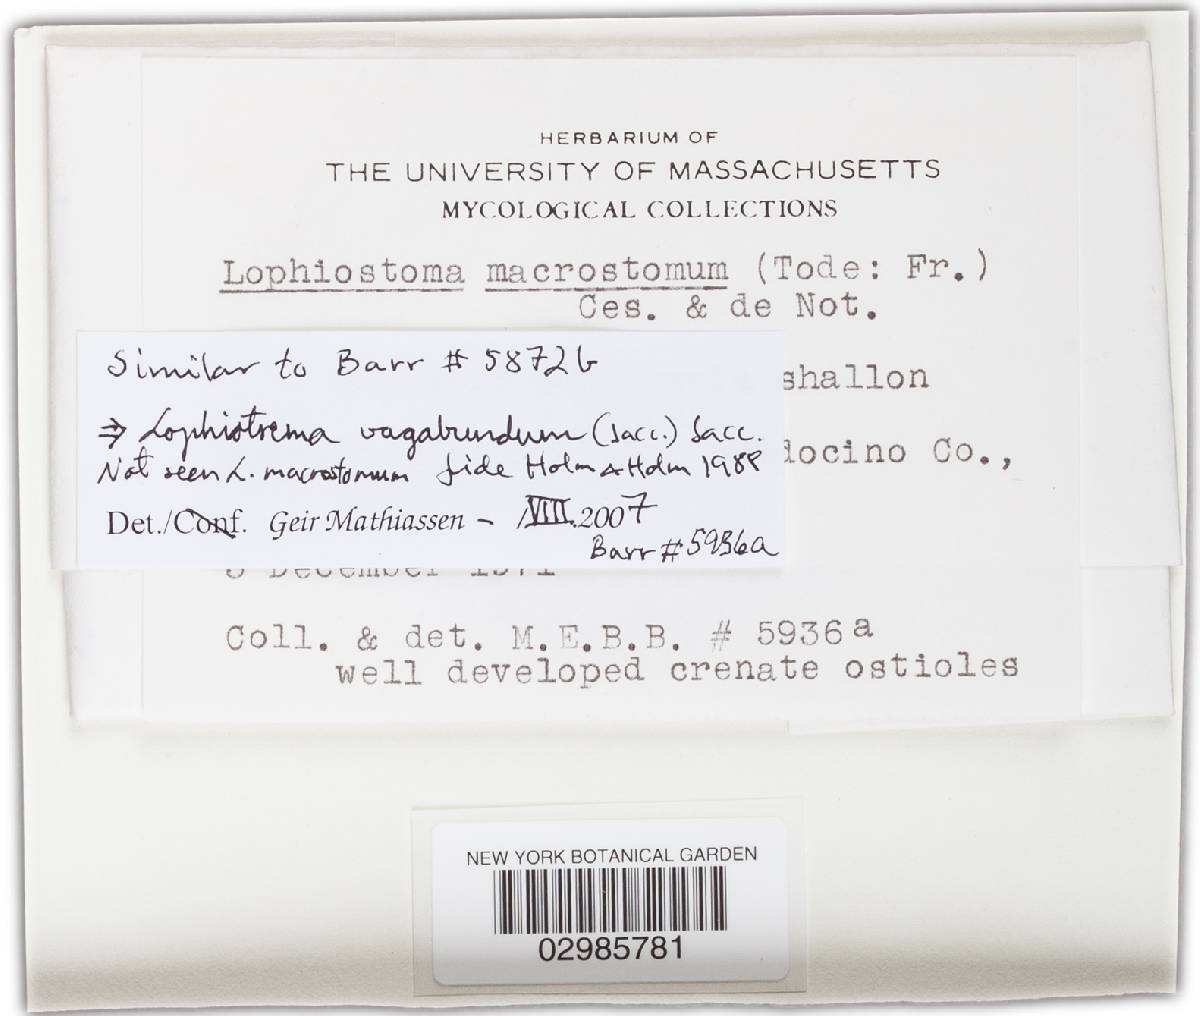 HERBARIUM OF
THE UNIVERSITY OF MASSACHUSETTS
MYCOLOGICAL COLLECTIONS
Lophiostoma macrostomum (Tode: Fr.)
Ces. & de Not.
shallon
docino Co.,
Similar to Barr # 5872b
⇒ Lophiotrema vagabundum (Sacc.) Sacc.
Not seen L. macrostomum fide Holm & Holm 1988
Det./Conf. Geir Mathiassen – /VIII.2007
Barr # 5936a
December
Coll. & det. M.E.B.B. # 5936a
well developed crenate ostioles
NEW YORK BOTANICAL GARDEN
02985781